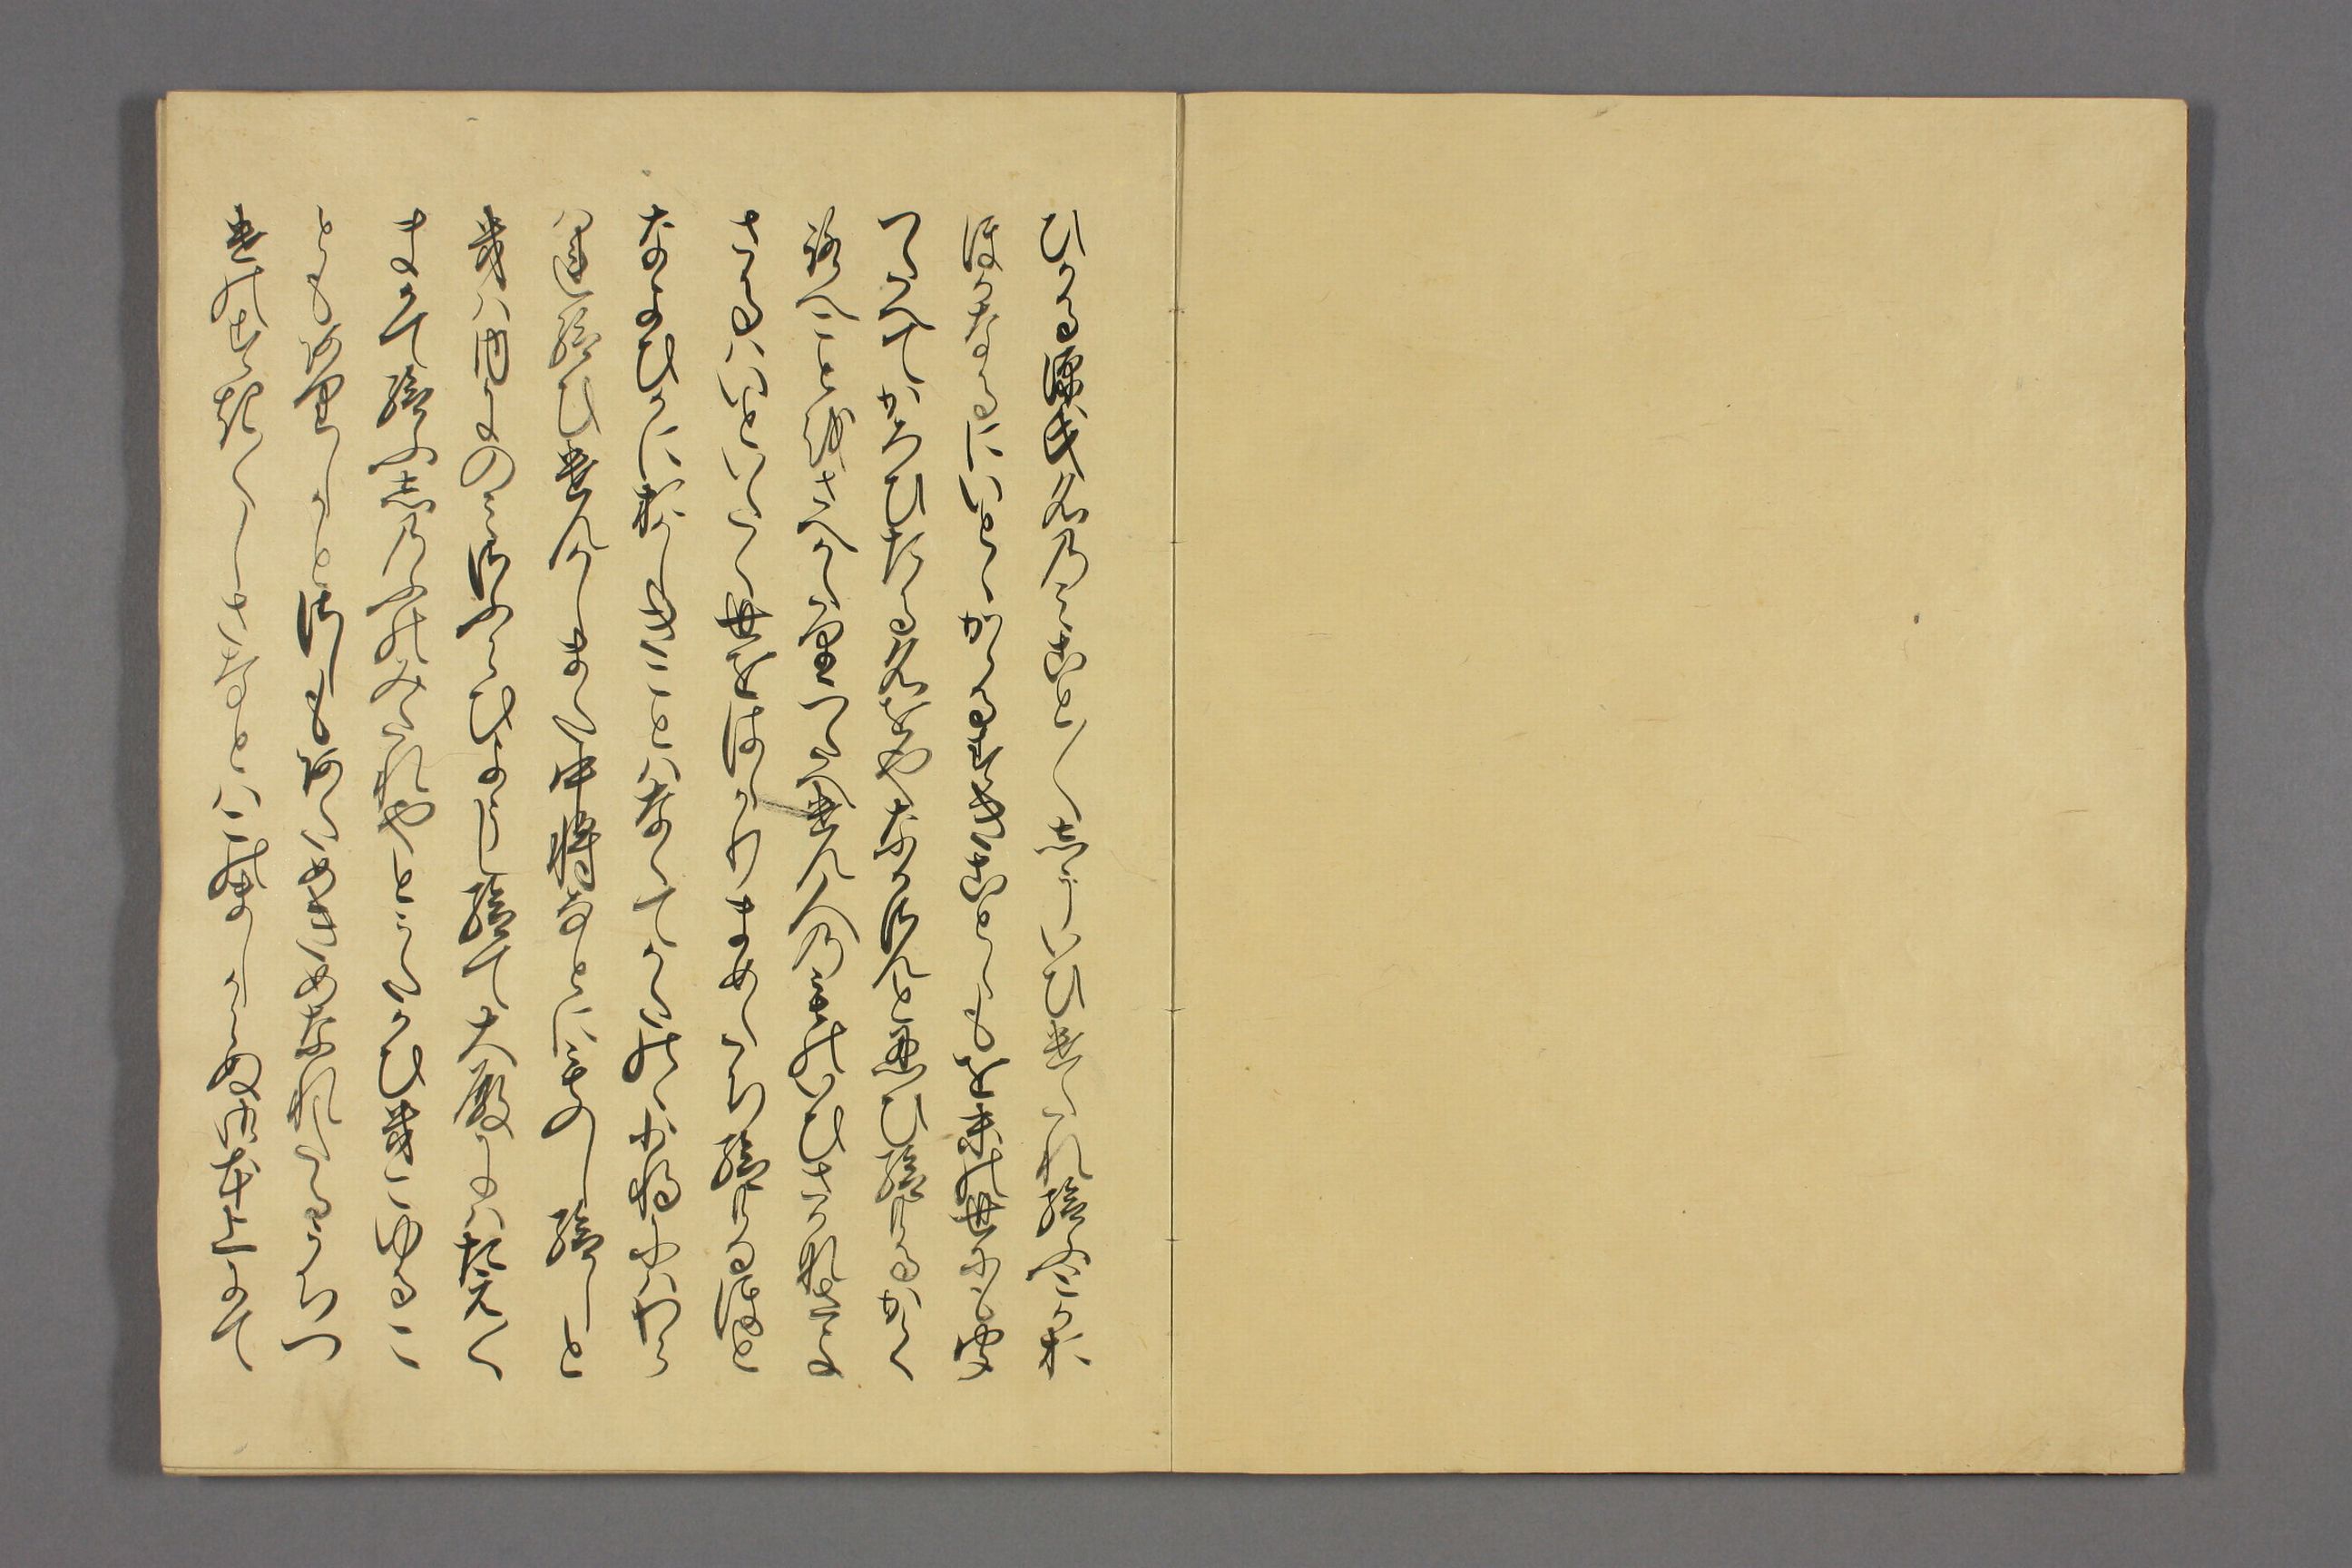 ひかる源氏名のみこと〱しういひけたれ給ふとかお
ほかなるにいとゝかゝるすきことゝもを末の世にも聞
つたへてかろひたる名をやなかさんと忍ひ給けるかく
ろへことをさへかたりつたへけん人のものいひさかなさよ
さるはいといたく世をはゝかりまめたち給けるほと
なよひかにおかしきことはなくてかたのゝ少将にはわら
はれ給ひけんかしまた中将なとにものし給しと
きは内にのみさふらひようし給て大殿にはたえ〱
まかて給ふ忍ふのみたれやとうたかひきこゆるこ
ともありしかとさしもあためきめなれたるうちつ
けのすき〱しさなとはこのましからぬ御本上にて